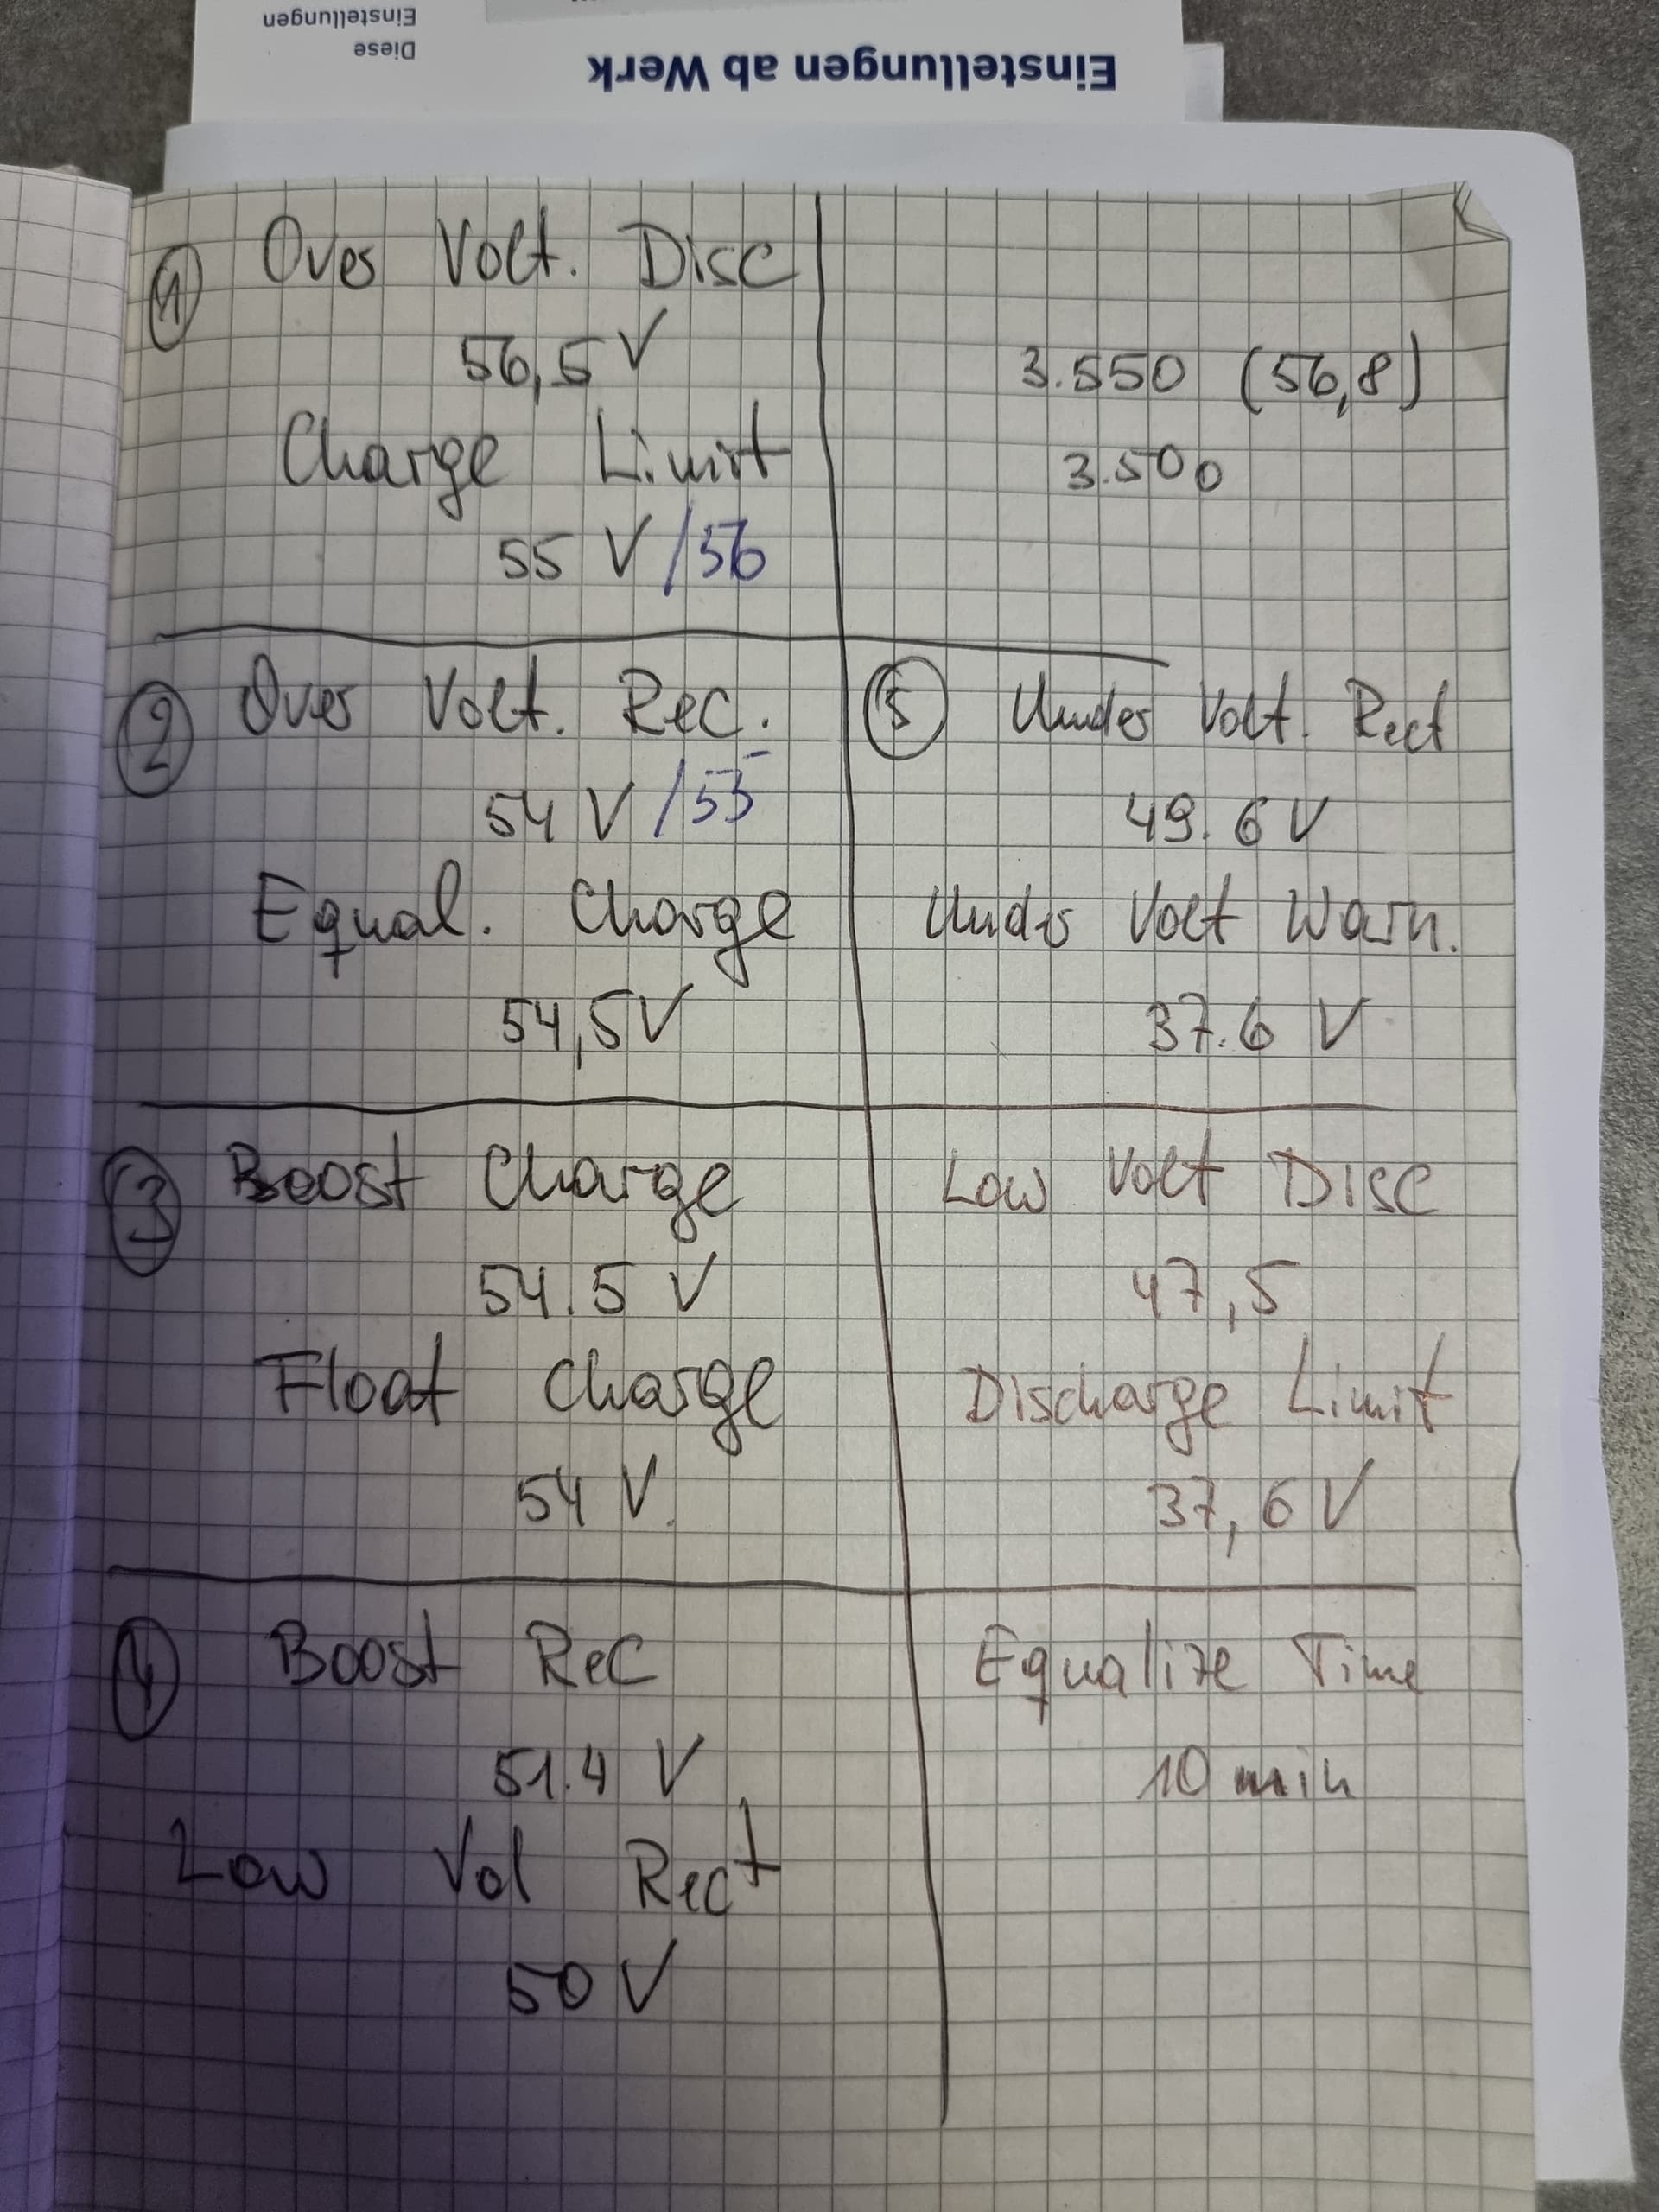 Diese
Einstellungen
Einstellungen ab Werk
1 Over Volt. Disc
56,5 V
Charge Limit
55 V /56
3.550 (56,8)
3.500
2 Over Volt. Rec.
54 V /55
Equal. Charge
54,5V
3 Boost Charge
54.5 V
Float Charge
54 V.
4 Boost Rec
51.4 V
Low Vol Rect
50 V
5 Under Volt. Rect
49.6 V
Under Volt Warn.
37.6 V
Low Volt Disc
47,5
Discharge Limit
37,6 V
Equalize Time
10 min